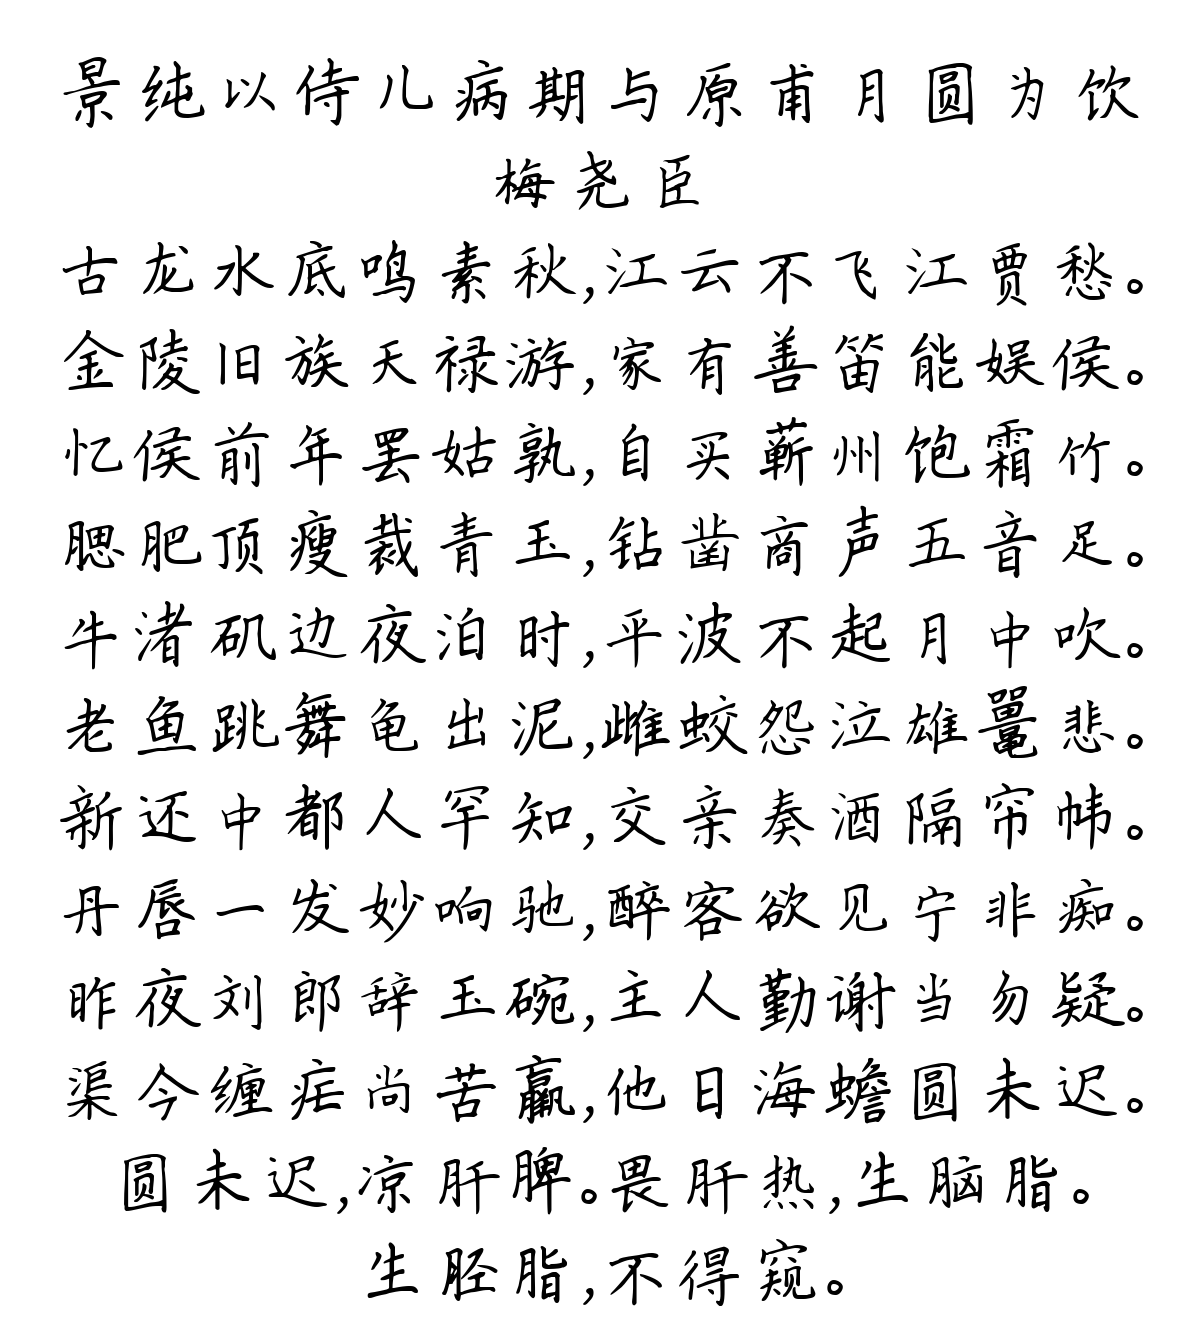 景纯以侍儿病期与原甫月圆为饮
梅尧臣
古龙水底鸣素秋,江云不飞江贾愁。
金陵旧族天禄游,家有善笛能娱侯。
忆侯前年罢姑孰,自买蕲州饱霜竹。
腮肥顶瘦裁青玉,钻凿商声五音足。
牛渚矶边夜泊时,平波不起月中吹。
老鱼跳舞龟出泥,雌蛟怨泣雄鼍悲。
新还中都人罕知,交亲奏酒隔帘帏。
丹唇一发妙响驰,醉客欲见宁非痴。
昨夜刘郎辞玉碗,主人勤谢当勿疑。
渠今缠疟尚苦羸,他日海蟾圆未迟。
圆未迟,凉肝脾。畏肝热,生脑脂。
生胫脂,不得窥。